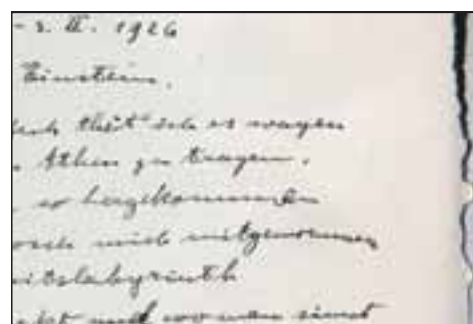 - 2. II. 1926
Einstein.
thät' ich es wagen
Athen zu tragen.
so hergekommen
mich mitgenommen
itslabyrinth
und wo man sinnt